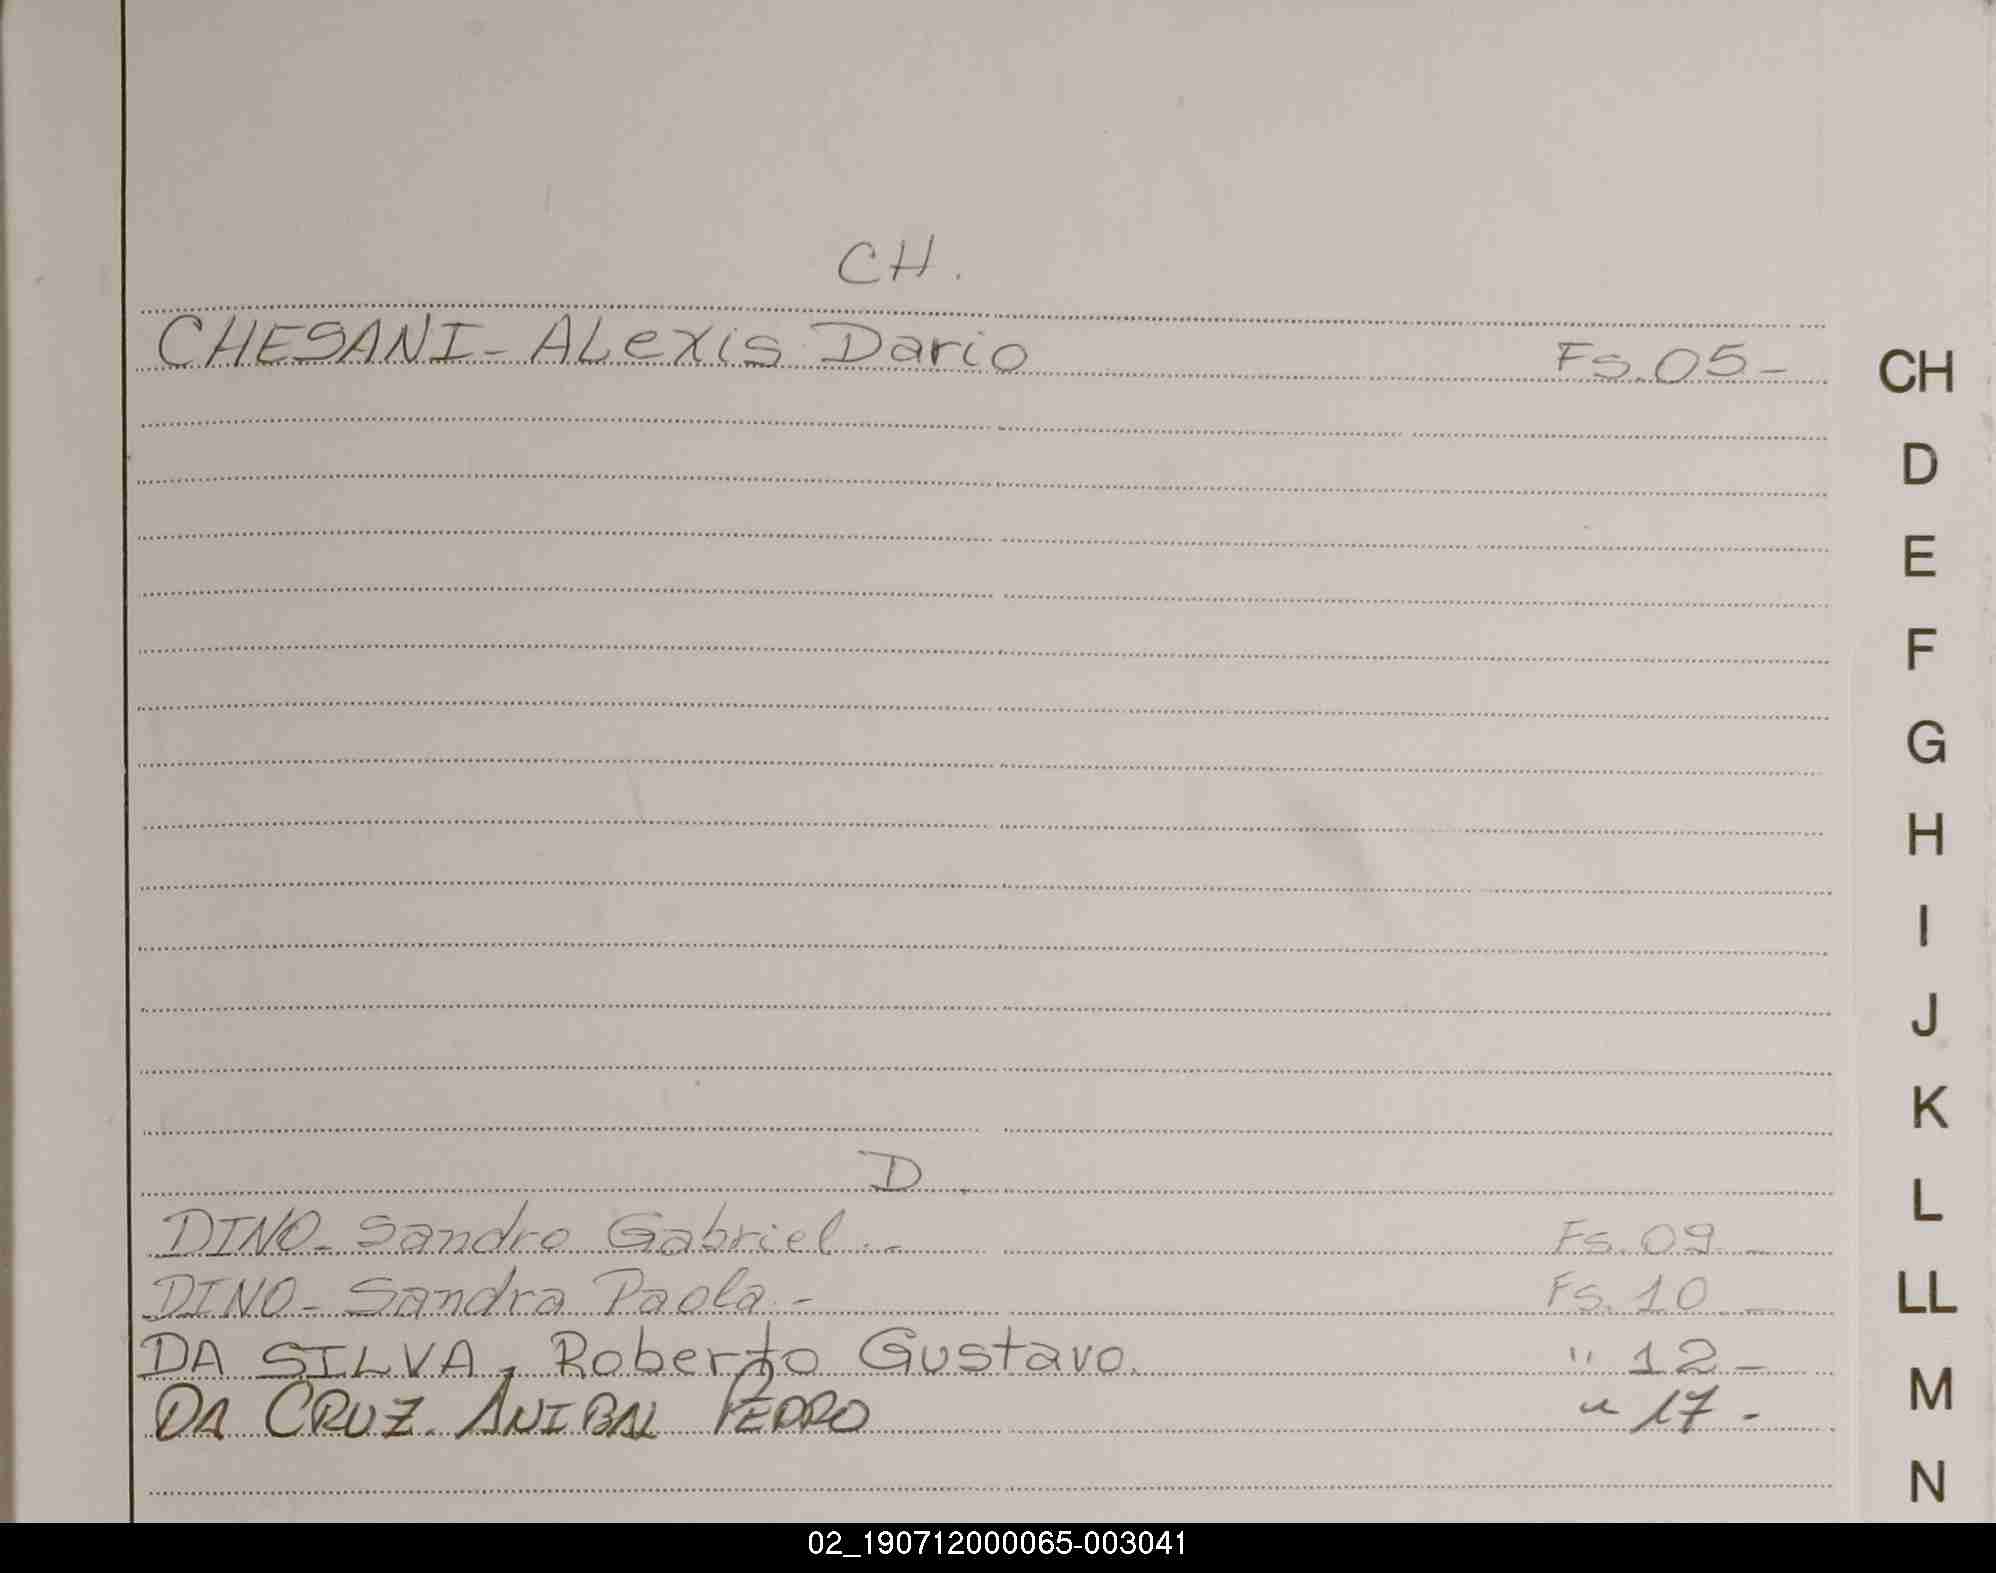 CH.
CHESANI - ALexis Dario Fs. 05 -
CH
D
E
F
G
H
I
J
K
D.
L
DINO - Sandro Gabriel . - Fs. 09 -
DINO - Sandra Paola - Fs. 10 -
LL
DA SILVA, Roberto Gustavo. " 12 -
M
DA CRUZ. ANIBAL PEDRO " 17 -
N
02_190712000065-003041